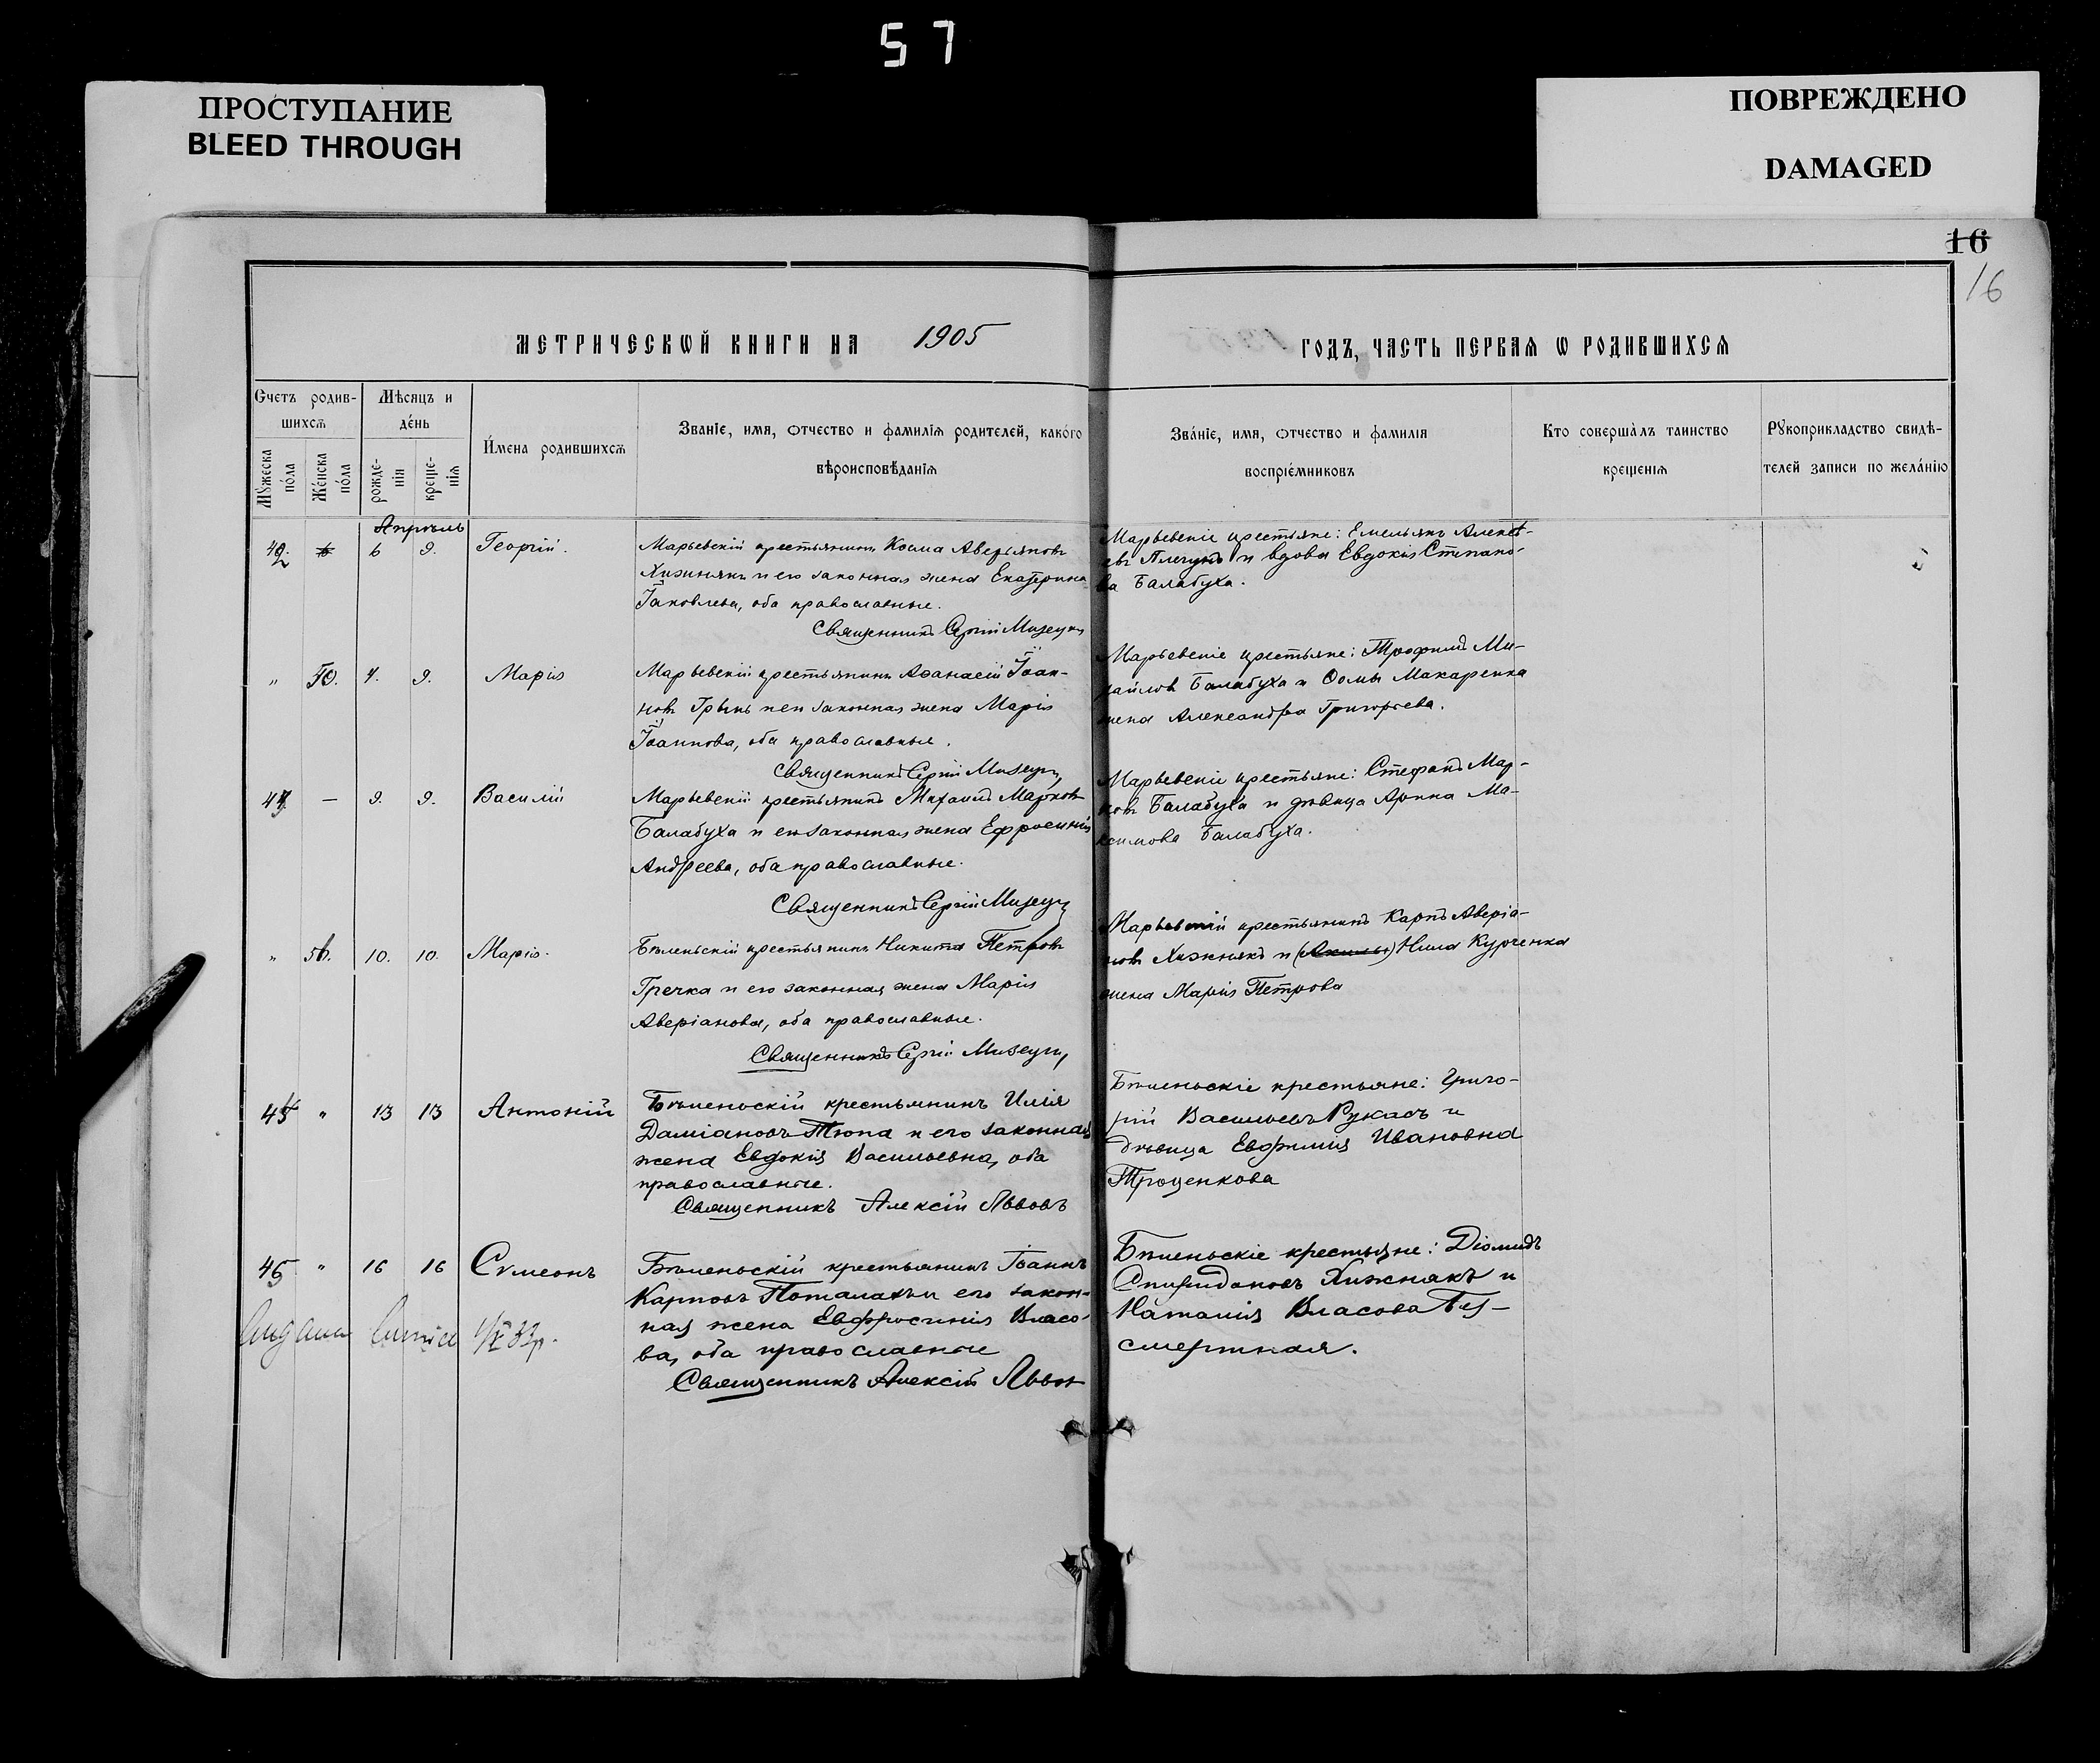 57
ПРОСТУПАНИЕ
BLEED THROUGH
ПОВРЕЖДЕНО
DAMAGED
16
16
МЕТРИЧЕСКѠЙ КНИГИ НА 1905
ГОДЪ, ЧАСТЬ ПЕРВАѦ Ѡ РОДИВШИХСѦ
Счетъ родив-
шихсѧ
Мꙋжеска
пола
Женска
пола
Мѣсяцъ и
де́нь
рожде-
нїя
креще-
нїя
И́мена родившихсѧ
Званїе, имя, ѻтчество и фамилїя родителей, како́го
вѣроисповѣданїя
Зва́нїе, имя, ѻтчество и фамилїя
воспрїе́мниковъ
Кто соверша̀лъ таинство
крещенїя
Рꙋкоприкладство свидѣ-
телей записи по жела́нїю
Апрѣль
42. 6 9. Георгій.
Марьевскій крестьянинъ Косма Аверьяновъ
Хижнякъ и его законная жена Екатерина
Іаковлева, оба православные.
Священникъ Сергій
Марьевскіе крестьяне: Емельянъ Алексѣ-
евъ и вдова Евдокія Степано-
ва Балабуха.
" 50. 7. 9. Марія
Марьевскій крестьянинъ Аѳанасій Іоан-
новъ и его законная жена Марія
Іоаннова, оба православные.
Священникъ Сергій
Марьевскіе крестьяне: Трофимъ Ми-
хайловъ Балабуха и Ѳомы Макаренка
жена Александра Григорьева.
43 — 9. 9. Василій
Марьевскій крестьянинъ Михаилъ Марковъ
Балабуха и его законная жена Ефросинія
Андреева, оба православные.
Священникъ Сергій
Марьевскіе крестьяне: Стефанъ Мар-
ковъ Балабуха и дѣвица Арина Ма-
ксимова Балабуха.
" 51. 10. 10. Марія.
Бѣленьскій крестьянинъ Никита Петровъ
Гречка и его законная жена Марія
Аверіанова, оба православные.
Священникъ Сергій
Марьевскій крестьянинъ Карпъ Аверіа-
новъ Хижнякъ и Нила Курченка
жена Марія Петрова
44 " 13 13 Антоній
Бѣленьскій крестьянинъ Илія
Даміановъ Тюпа и его законная
жена Евдокія Васильевна, оба
православные.
Священникъ Алексій Львовъ
Бѣленьскіе крестьяне: Григо-
рій Васильевъ Рукасъ и
дѣвица Евфимія Ивановна
Троценкова
45 " 16 16 Сѵмеонъ
Бѣленьскій крестьянинъ Іоаннъ
Карповъ и его закон-
ная жена Евфросинія Власо-
ва, оба православные
Священникъ Алексій Львовъ
Бѣленьскіе крестьяне: Діомидъ
Спиридоновъ Хижнякъ и
Наталія Власова Без-
смертная.